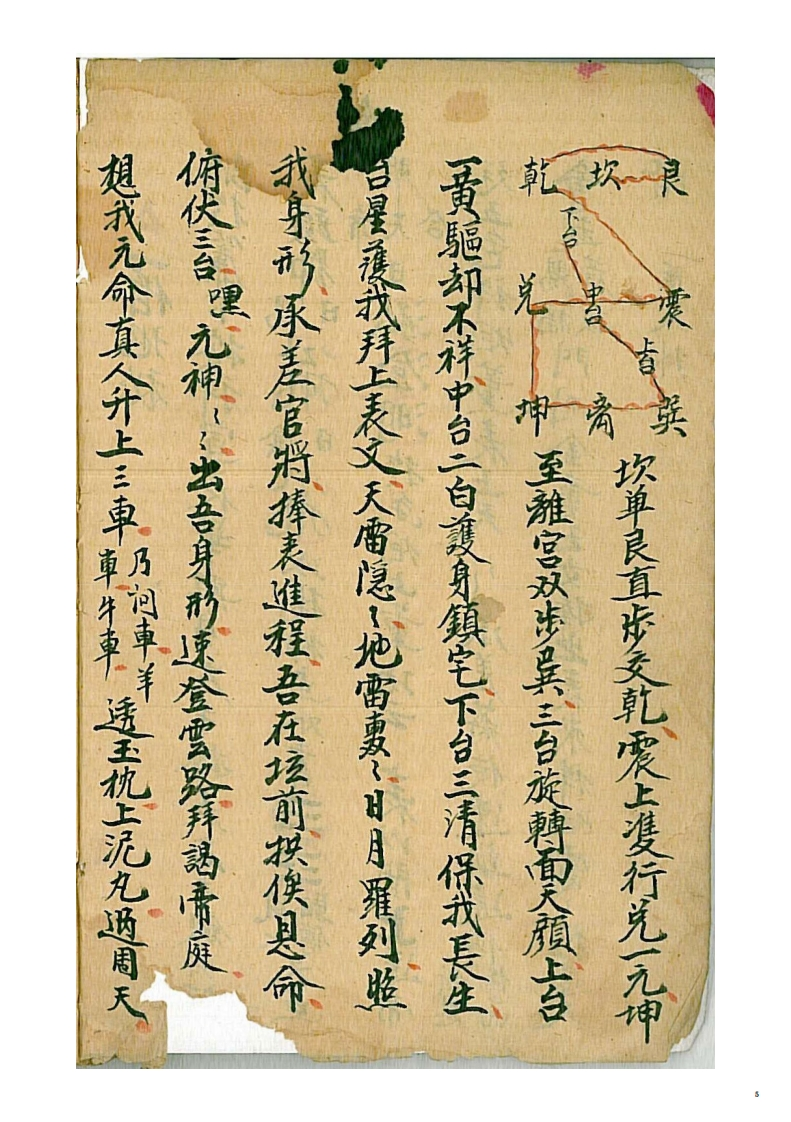 艮 坎 乾
下台
震 中台 兌
上台
巽 离 坤
坎单艮直步交乾震上隻行兌一元坤
至離宮双步巽三台旋轉面天顔上台
一黃驅却不祥中台二白護身鎮宅下台三清保我長生
台星護我拜上表文天雷隐〻地雷轟〻日月羅列照
我身形承差官將捧表進程吾在坛前拱俟恳命
俯伏三台嘿元神〻〻出吾身形速登雲路拜謁帝庭
想我元命真人升上三車乃河車羊車牛車透玉枕上泥丸過周天
5